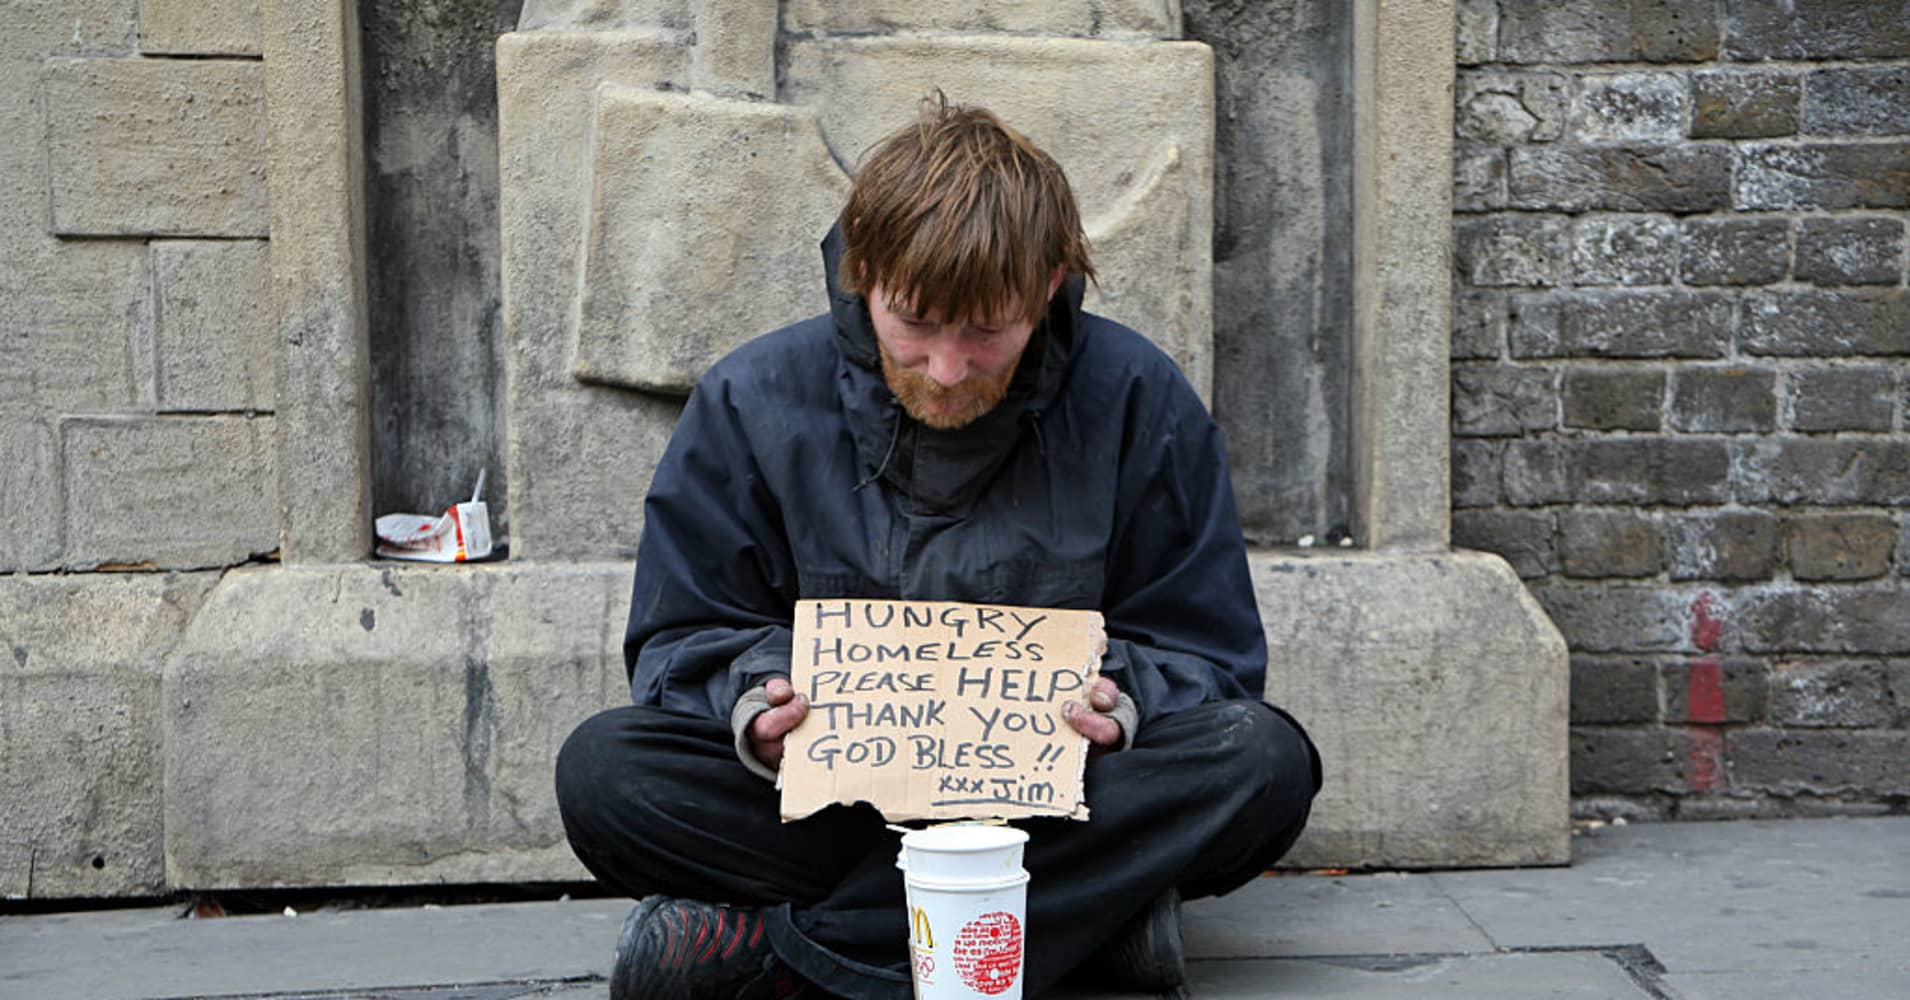 HUNGRY
HOMELESS
PLEASE HELP
THANK YOU
GOD BLESS !!
xxx Jim.
m